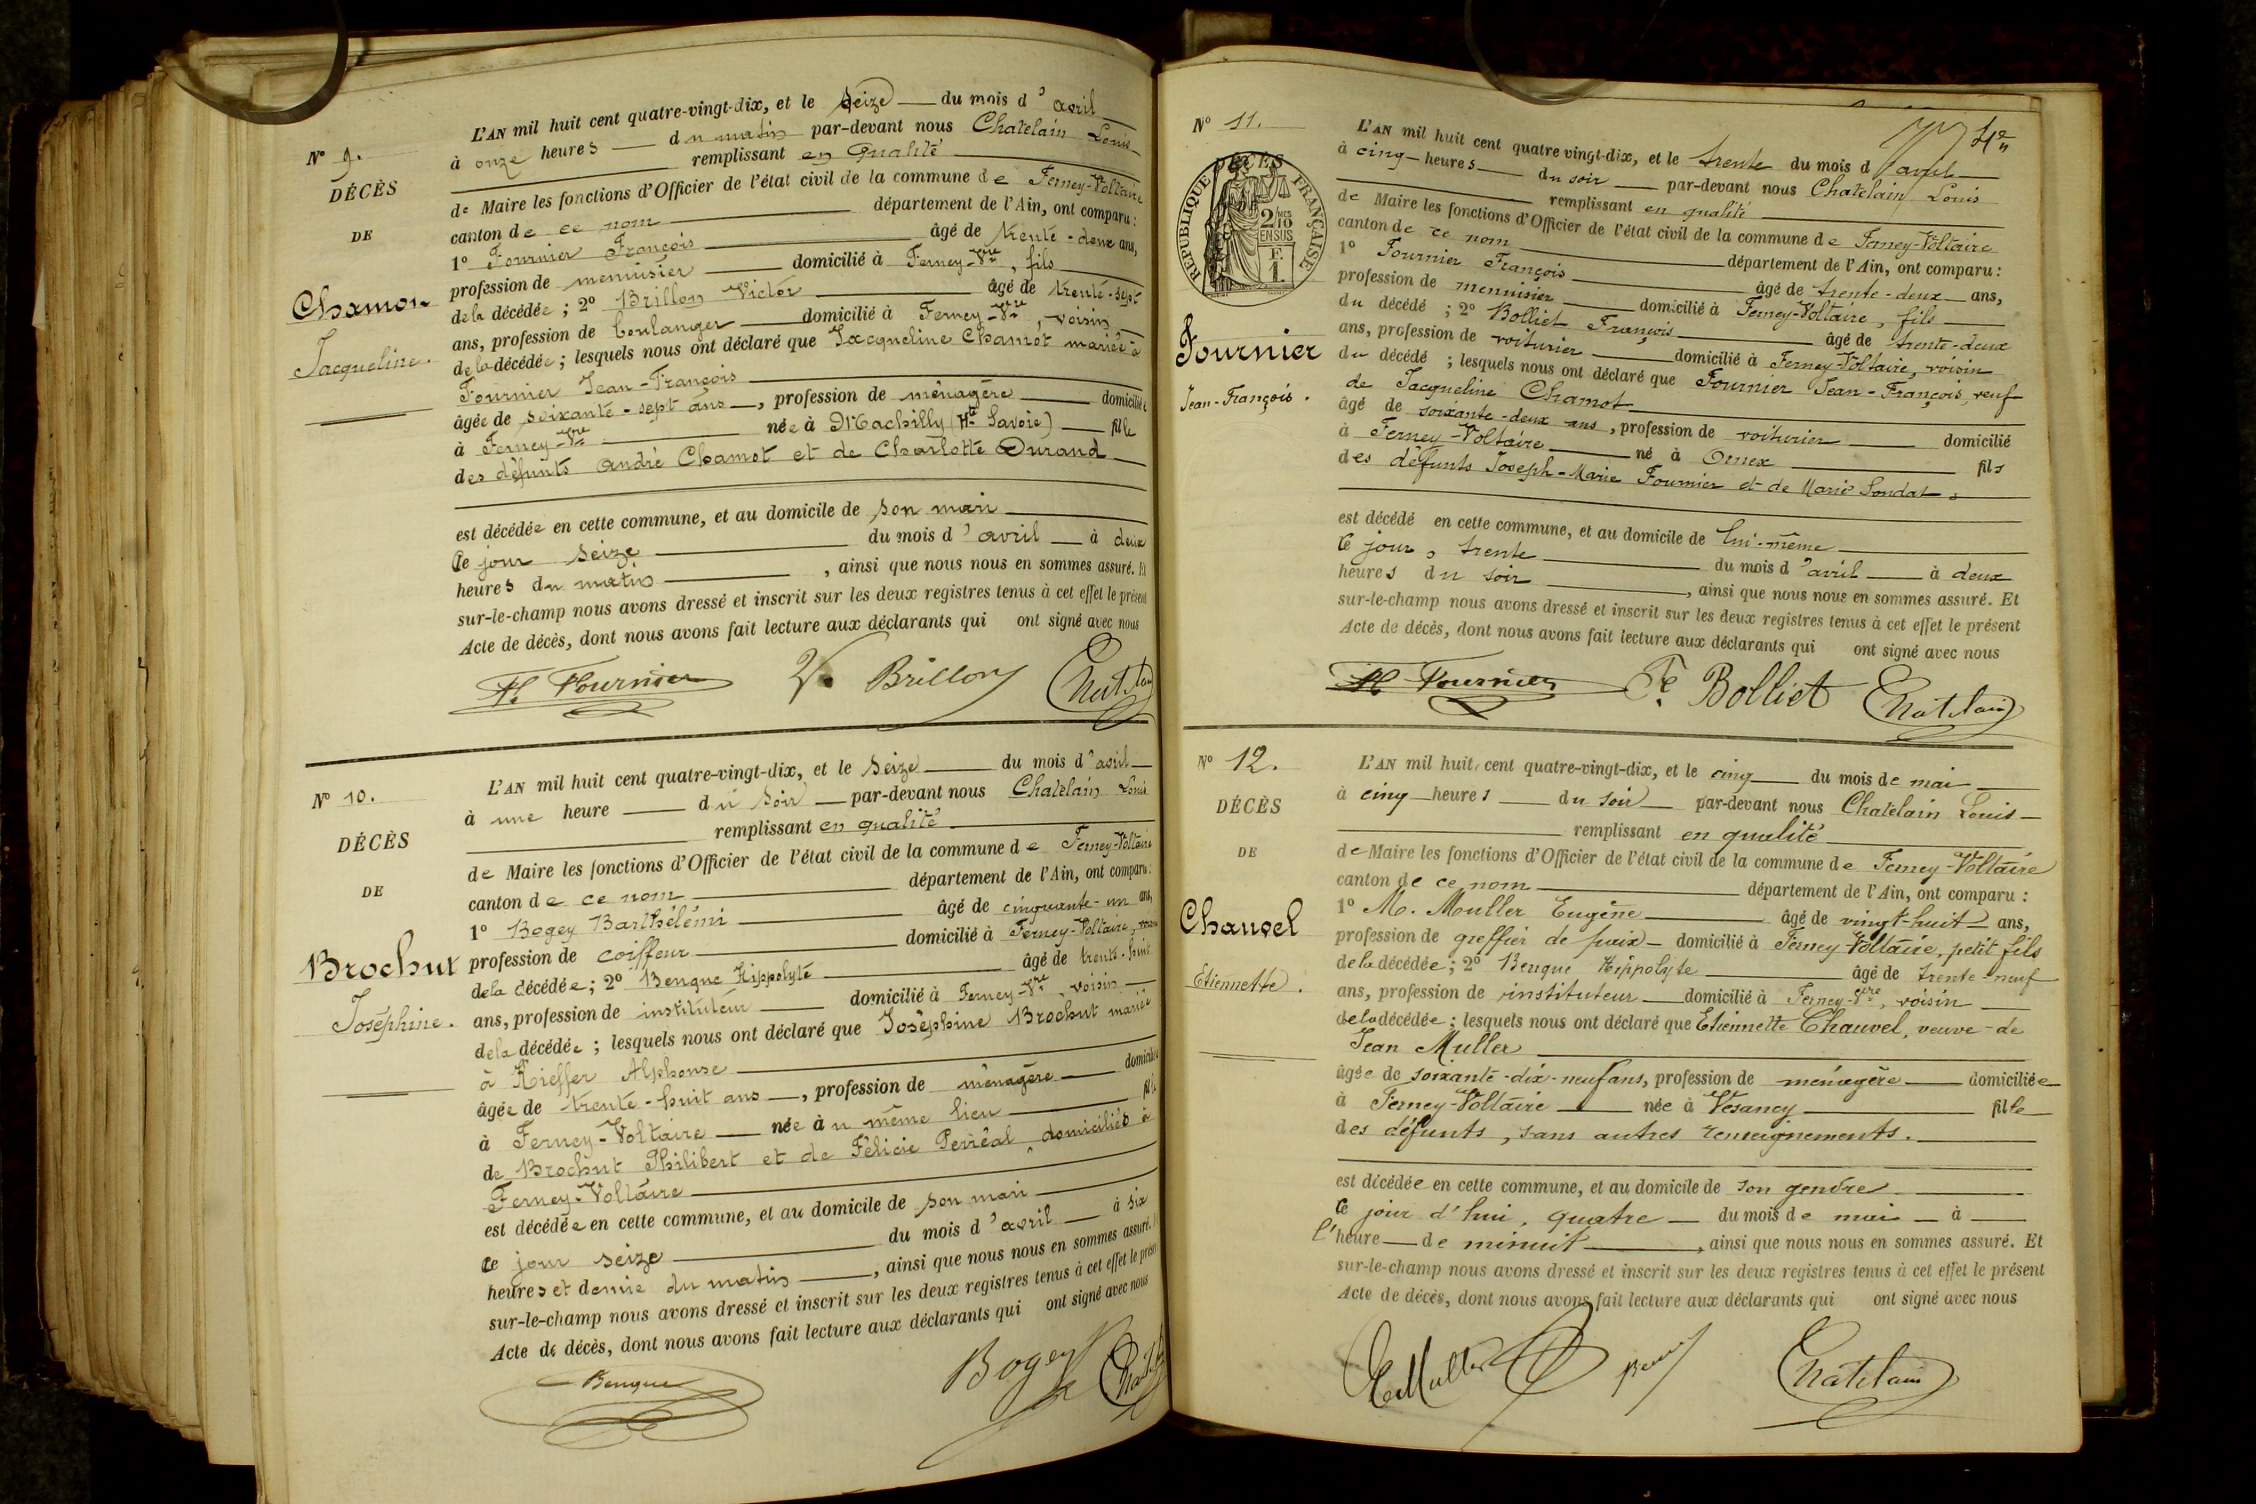 Nº 9.
DÉCÈS
DE
Chamot
Jacqueline.
L'AN mil huit cent quatre-vingt-dix, et le seize du mois d'avril
à onze heures du matin par-devant nous Chatelain Louis
remplissant en qualité
de Maire les fonctions d'Officier de l'état civil de la commune de Ferney-Voltaire
canton de ce nom département de l'Ain, ont comparu :
1º Fournier François âgé de trente-deux ans,
profession de menuisier domicilié à Ferney-Vre, fils
de la décédée ; 2º Brillon Victor âgé de trente-sept
ans, profession de boulanger domicilié à Ferney-Vre, voisin
de la décédée ; lesquels nous ont déclaré que Jacqueline Chamot mariée à
Fournier Jean-François
âgée de soixante-sept ans, profession de ménagère domiciliée
à Ferney-Vre née à Machilly (Hte Savoie) fille
des défunts André Chamot et de Charlotte Durand
est décédée en cette commune, et au domicile de son mari
Ce jour seize du mois d'avril à deux
heures du matin, ainsi que nous nous en sommes assuré. Et
sur-le-champ nous avons dressé et inscrit sur les deux registres tenus à cet effet le présent
Acte de décès, dont nous avons fait lecture aux déclarants qui ont signé avec nous
Fournier V. Brillon Chatelain
Nº 10.
DÉCÈS
DE
Brochut
Joséphine.
L'AN mil huit cent quatre-vingt-dix, et le seize du mois d'avril
à une heure du soir par-devant nous Chatelain Louis
remplissant en qualité
de Maire les fonctions d'Officier de l'état civil de la commune de Ferney-Voltaire
canton de ce nom département de l'Ain, ont comparu :
1º Bogey Barthélémi âgé de cinquante-un ans,
profession de coiffeur domicilié à Ferney-Voltaire, voisin
de la décédée ; 2º Benque Hippolyte âgé de trente-huit
ans, profession de instituteur domicilié à Ferney-Vre, voisin
de la décédée ; lesquels nous ont déclaré que Joséphine Brochut mariée
à Kieffer Alphonse
âgée de trente-huit ans, profession de ménagère domiciliée
à Ferney-Voltaire née à u même lieu fille
de Brochut Philibert et de Félicie Perréal, domiciliés à
Ferney-Voltaire
est décédée en cette commune, et au domicile de son mari
Ce jour seize du mois d'avril à six
heures et demie du matin, ainsi que nous nous en sommes assuré. Et
sur-le-champ nous avons dressé et inscrit sur les deux registres tenus à cet effet le présent
Acte de décès, dont nous avons fait lecture aux déclarants qui ont signé avec nous
Benque Bogey Chatelain
Nº 11.
DÉCÈS
RÉPUBLIQUE FRANÇAISE
2/10 MES
EN SUS
F.
1.
Fournier
Jean-François.
L'AN mil huit cent quatre vingt-dix, et le trente du mois d'avril
à cinq heures du soir par-devant nous Chatelain Louis
remplissant en qualité
de Maire les fonctions d'Officier de l'état civil de la commune de Ferney-Voltaire
canton de ce nom département de l'Ain, ont comparu :
1º Fournier François âgé de trente-deux ans,
profession de menuisier domicilié à Ferney-Voltaire, fils
du décédé ; 2º Bolliet François âgé de trente-deux
ans, profession de voiturier domicilié à Ferney-Voltaire, voisin
du décédé ; lesquels nous ont déclaré que Fournier Jean-François, veuf
de Jacqueline Chamot
âgé de soixante-deux ans, profession de voiturier domicilié
à Ferney-Voltaire né à Ornex fils
des défunts Joseph-Marie Fournier et de Marie
est décédé en cette commune, et au domicile de lui-même
Ce jour, trente du mois d'avril à deux
heures du soir, ainsi que nous nous en sommes assuré. Et
sur-le-champ nous avons dressé et inscrit sur les deux registres tenus à cet effet le présent
Acte de décès, dont nous avons fait lecture aux déclarants qui ont signé avec nous
Fournier Bolliet Chatelain
Nº 12.
DÉCÈS
DE
Chauvel
Etiennette.
L'AN mil huit cent quatre-vingt-dix, et le cinq du mois de mai
à cinq heures du soir par-devant nous Chatelain Louis
remplissant en qualité
de Maire les fonctions d'Officier de l'état civil de la commune de Ferney-Voltaire
canton de ce nom département de l'Ain, ont comparu :
1º M. Muller Eugène âgé de vingt-huit ans,
profession de greffier de paix domicilié à Ferney-Voltaire, petit fils
de la décédée ; 2º Benque Hippolyte âgé de trente-neuf
ans, profession de instituteur domicilié à Ferney-Vre, voisin
de la décédée ; lesquels nous ont déclaré que Etiennette Chauvel, veuve de
Jean Muller
âgée de soixante-dix-neuf ans, profession de ménagère domiciliée
à Ferney-Voltaire née à Vesancy fille
des défunts, sans autres renseignements.
est décédée en cette commune, et au domicile de son gendre
Ce jour d'hui, quatre du mois de mai à
l'heure de minuit, ainsi que nous nous en sommes assuré. Et
sur-le-champ nous avons dressé et inscrit sur les deux registres tenus à cet effet le présent
Acte de décès, dont nous avons fait lecture aux déclarants qui ont signé avec nous
E Muller Chatelain